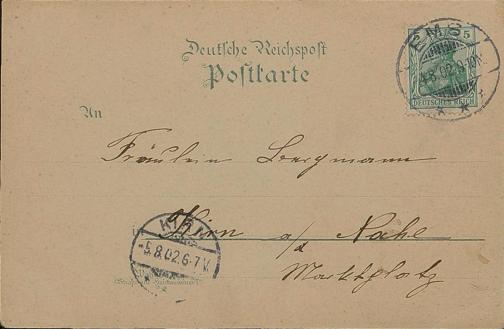 Deutsche Reichspost
Postkarte
EMS
5
4.8.02.9-10N.
DEUTSCHES REICH
An
Fräulein Bergmann
Kirn a/d Nahe
Marktplatz
KIRN
-5.8.02.6-7V.